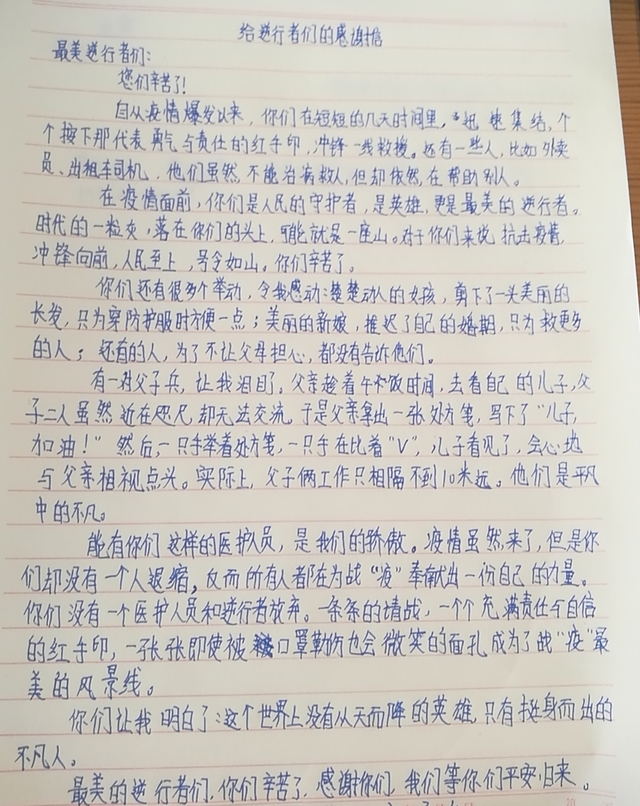 给逆行者们的感谢信
最美逆行者们:
您们辛苦了!
自从疫情爆发以来,你们在短短的几天时间里,迅速集结,个
个按下那代表勇气与责任的红手印,冲锋一线救援。还有一些人,比如外卖
员、出租车司机,他们虽然不能治病救人,但却依然在帮助别人。
在疫情面前,你们是人民的守护者,是英雄,更是最美的逆行者。
时代的一粒灰,落在你们的头上,可能就是一座山。对于你们来说,抗击疫情,
冲锋向前,人民至上,号令如山。你们辛苦了。
你们还有很多个举动,令我感动:楚楚动人的女孩,剪下了一头美丽的
长发,只为穿防护服时方便一点;美丽的新娘,推迟了自己的婚期,只为救更多
的人;还有的人,为了不让父母担心,都没有告诉他们。
有一对父子兵,让我泪目了,父亲趁着午饭时间,去看自己的儿子,父
子二人虽然近在咫尺却无法交流,于是父亲拿出一张处方笺,写下了“儿子,
加油!”然后,一只手举着处方笺,一只手在比着“V”,儿子看见了,会心地
与父亲相视点头。实际上,父子俩工作只相隔不到10米远。他们是平凡
中的不凡。
能有你们这样的医护人员,是我们的骄傲。疫情虽然来了,但是你
们却没有一个人退缩,反而所有人都在为战“疫”奉献出一份自己的力量。
你们没有一个医护人员和逆行者放弃。一条条的请战,一个个充满责任与自信
的红手印,一张张即使被口罩勒伤也会微笑的面孔成为了战“疫”最
美的风景线。
你们让我明白了:这个世界上没有从天而降的英雄,只有挺身而出的
不凡人。
最美的逆行者们,你们辛苦了,感谢你们,我们等你们平安归来。